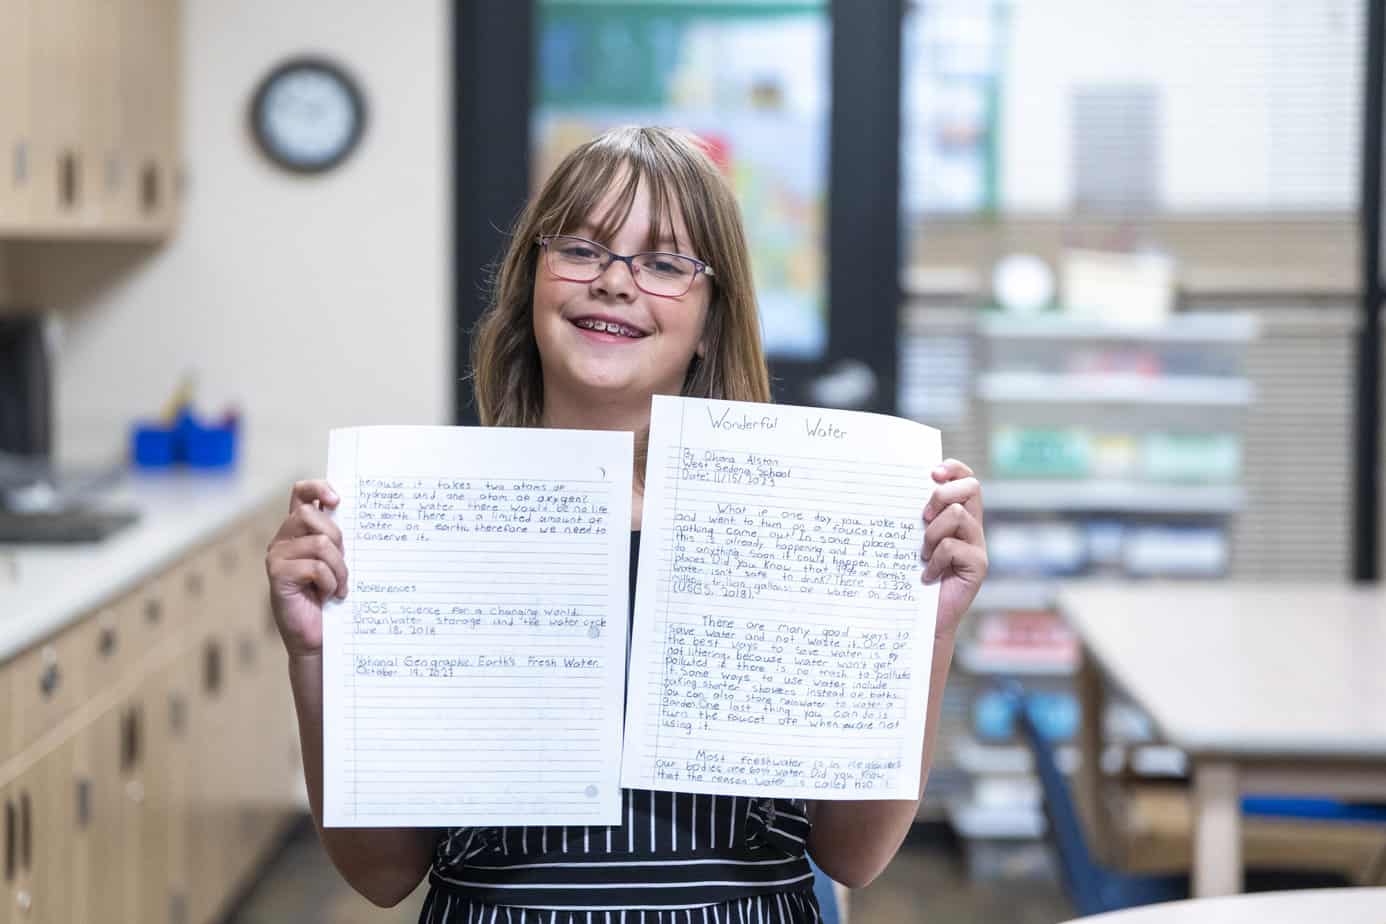 Wonderful Water
By Dhara Alston
West Sedona School
Date: 11/15/2023
What if one day you woke up
and went to turn on a faucet and
nothing came out! In some places
this is already happening and if we don't
do anything soon it could happen in more
places. Did you know that of Earth's
water isn't safe to drink? There is 326
million trillion gallons of water on earth
(USGS, 2018).
There are many good ways to
save water and not waste it. One of
the best ways to save water is by
not littering, because water won't get
polluted if there is no trash to pollute
it. Some ways to use water include
taking shorter showers instead of baths.
You can also store rainwater to water a
garden. One last thing you can do is
turn the faucet off when you are not
using it.
Most freshwater is in
our bodies are 60% water. Did you know
that the reason water is called h20 is
because it takes two atoms of
hydrogen and one atom of oxygen?
Without water there would be no life
on earth. There is a limited amount of
water on earth, therefore we need to
conserve it.
References
USGS science for a changing world.
Grounwater storage and the water cycle
June 18, 2018
National Geographic Earth's Fresh Water.
October 19, 2023